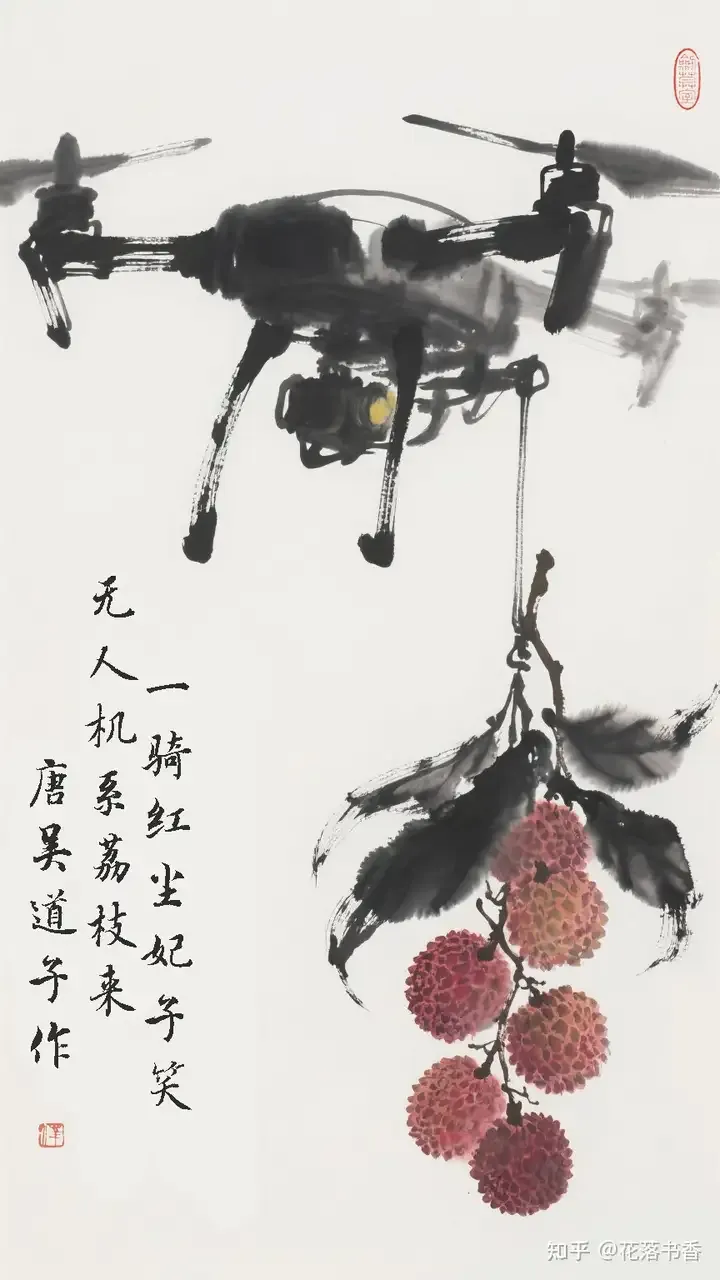 一骑红尘妃子笑
无人机系荔枝来
唐吴道子作
知乎 @花落书香